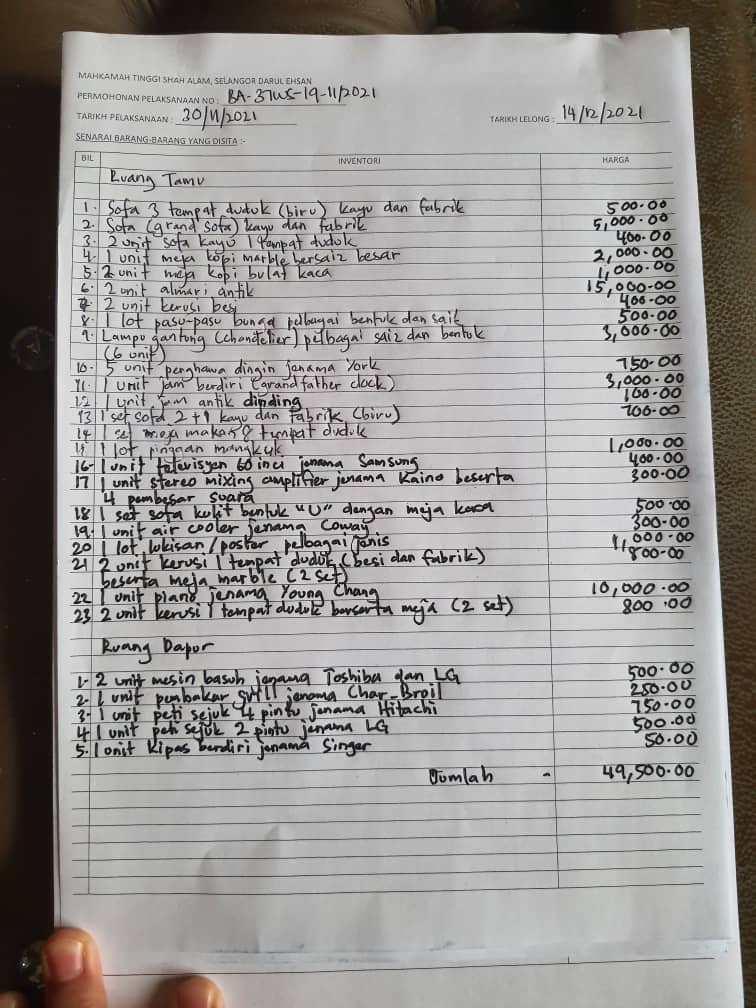 MAHKAMAH TINGGI SHAH ALAM, SELANGOR DARUL EHSAN
PERMOHONAN PELAKSANAAN NO : BA-37WS-19-11/2021
TARIKH PELAKSANAAN : 30/11/2021 TARIKH LELONG : 14/12/2021
SENARAI BARANG-BARANG YANG DISITA :-
BIL INVENTORI HARGA
Ruang Tamu
1. Sofa 3 tempat duduk (biru) kayu dan fabrik 500.00
2. Sofa (grand sofa) kayu dan fabrik 5,000.00
3. 2 unit sofa kayu 1 tempat duduk 400.00
4. 1 unit meja kopi marble bersaiz besar 2,000.00
5. 2 unit meja kopi bulat kaca 1,000.00
6. 2 unit almari antik 15,000.00
7. 2 unit kerusi besi 400.00
8. 1 lot pasu-pasu bunga pelbagai bentuk dan saiz 500.00
9. Lampu gantung (chandelier) pelbagai saiz dan bentuk 3,000.00
(6 unit)
10. 5 unit penghawa dingin jenama York 750.00
11. 1 unit jam berdiri (grandfather clock) 3,000.00
12. 1 unit jam antik dinding 100.00
13 1 set sofa 2+1 kayu dan fabrik (biru) 700.00
14 1 set meja makan 8 tempat duduk
1 lot pinggan mangkuk 1,000.00
16. 1 unit televisyen 60 inci jenama Samsung 400.00
17 1 unit stereo mixing amplifier jenama Kaino beserta 300.00
4 pembesar suara
18 1 set sofa kulit bentuk "U" dengan meja kaca 500.00
19. 1 unit air cooler jenama Coway 300.00
20 1 lot lukisan/poster pelbagai jenis 1,000.00
21 2 unit kerusi 1 tempat duduk (besi dan fabrik) 800.00
beserta meja marble (2 set)
22 1 unit piano jenama Young Chang 10,000.00
23 2 unit kerusi 1 tempat duduk berserta meja (2 set) 800.00
Ruang Dapur
1. 2 unit mesin basuh jenama Toshiba dan LG 500.00
2. 1 unit pembakar grill jenama Char-Broil 250.00
3. 1 unit peti sejuk 4 pintu jenama Hitachi 750.00
4. 1 unit peti sejuk 2 pintu jenama LG 500.00
5. 1 unit kipas berdiri jenama Singer 50.00
Jumlah - 49,500.00